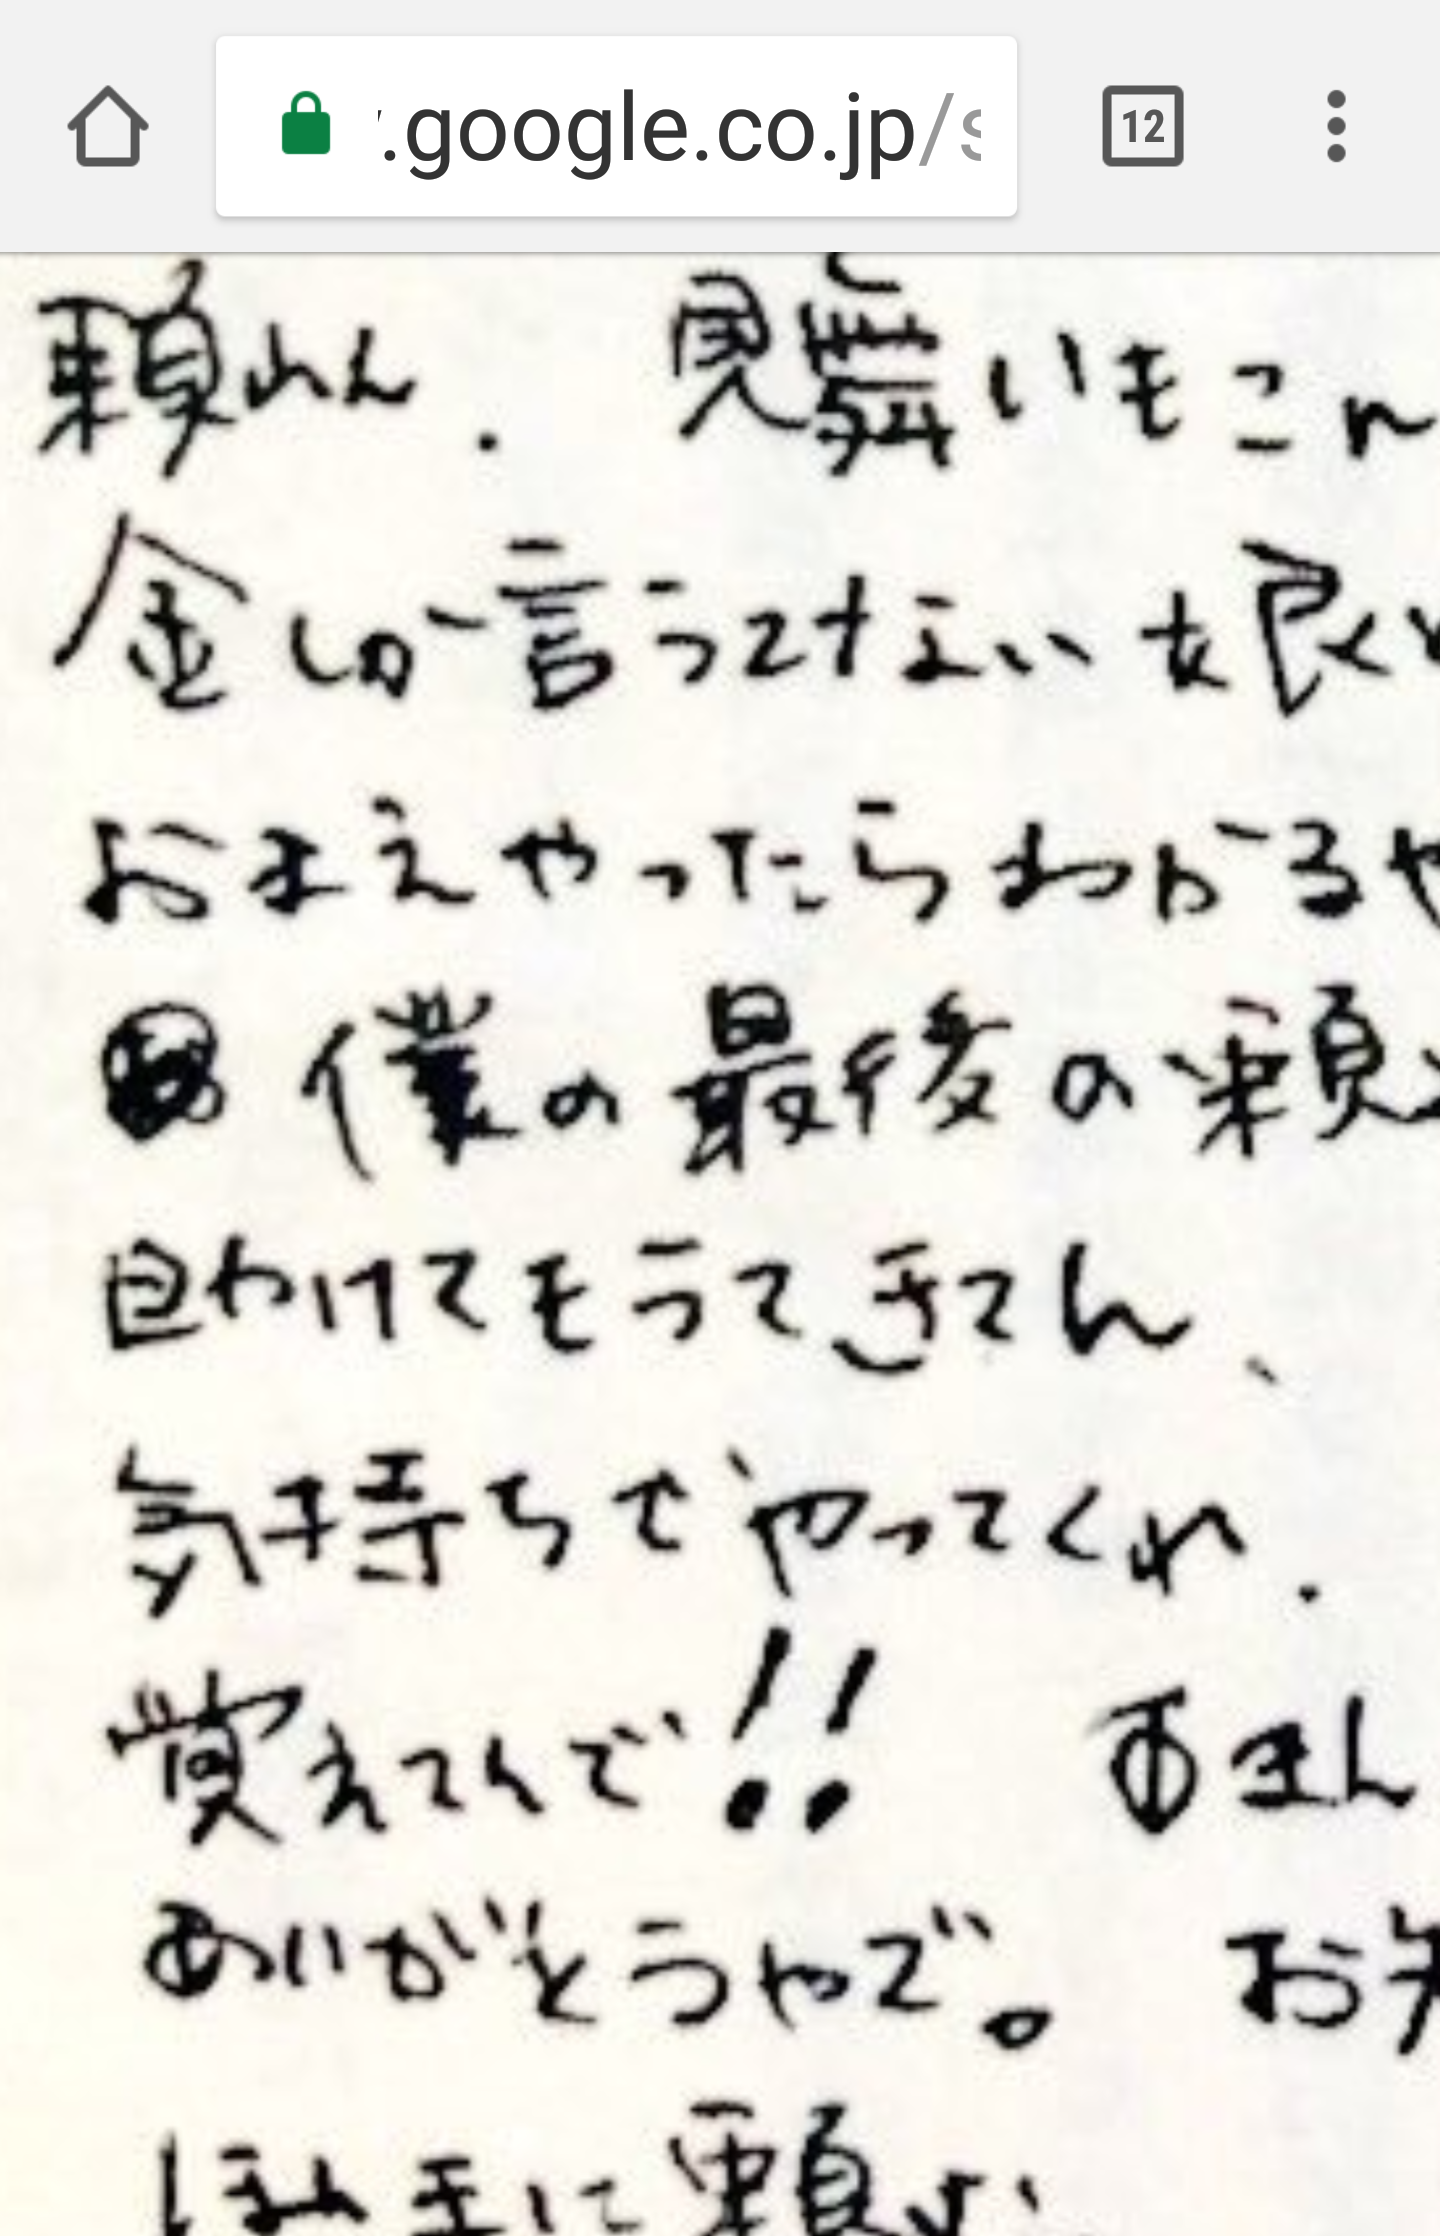 .google.co.jp/s
12
頼れん. 見舞いもこん
金しか言うてない を良く
おまえやったらわかるや
僕の最後の頼
わけてもうて きてん、
気持ちでやってくれ.
覚えてんで!!
ありがとうやで。 お
ほんまに頼む